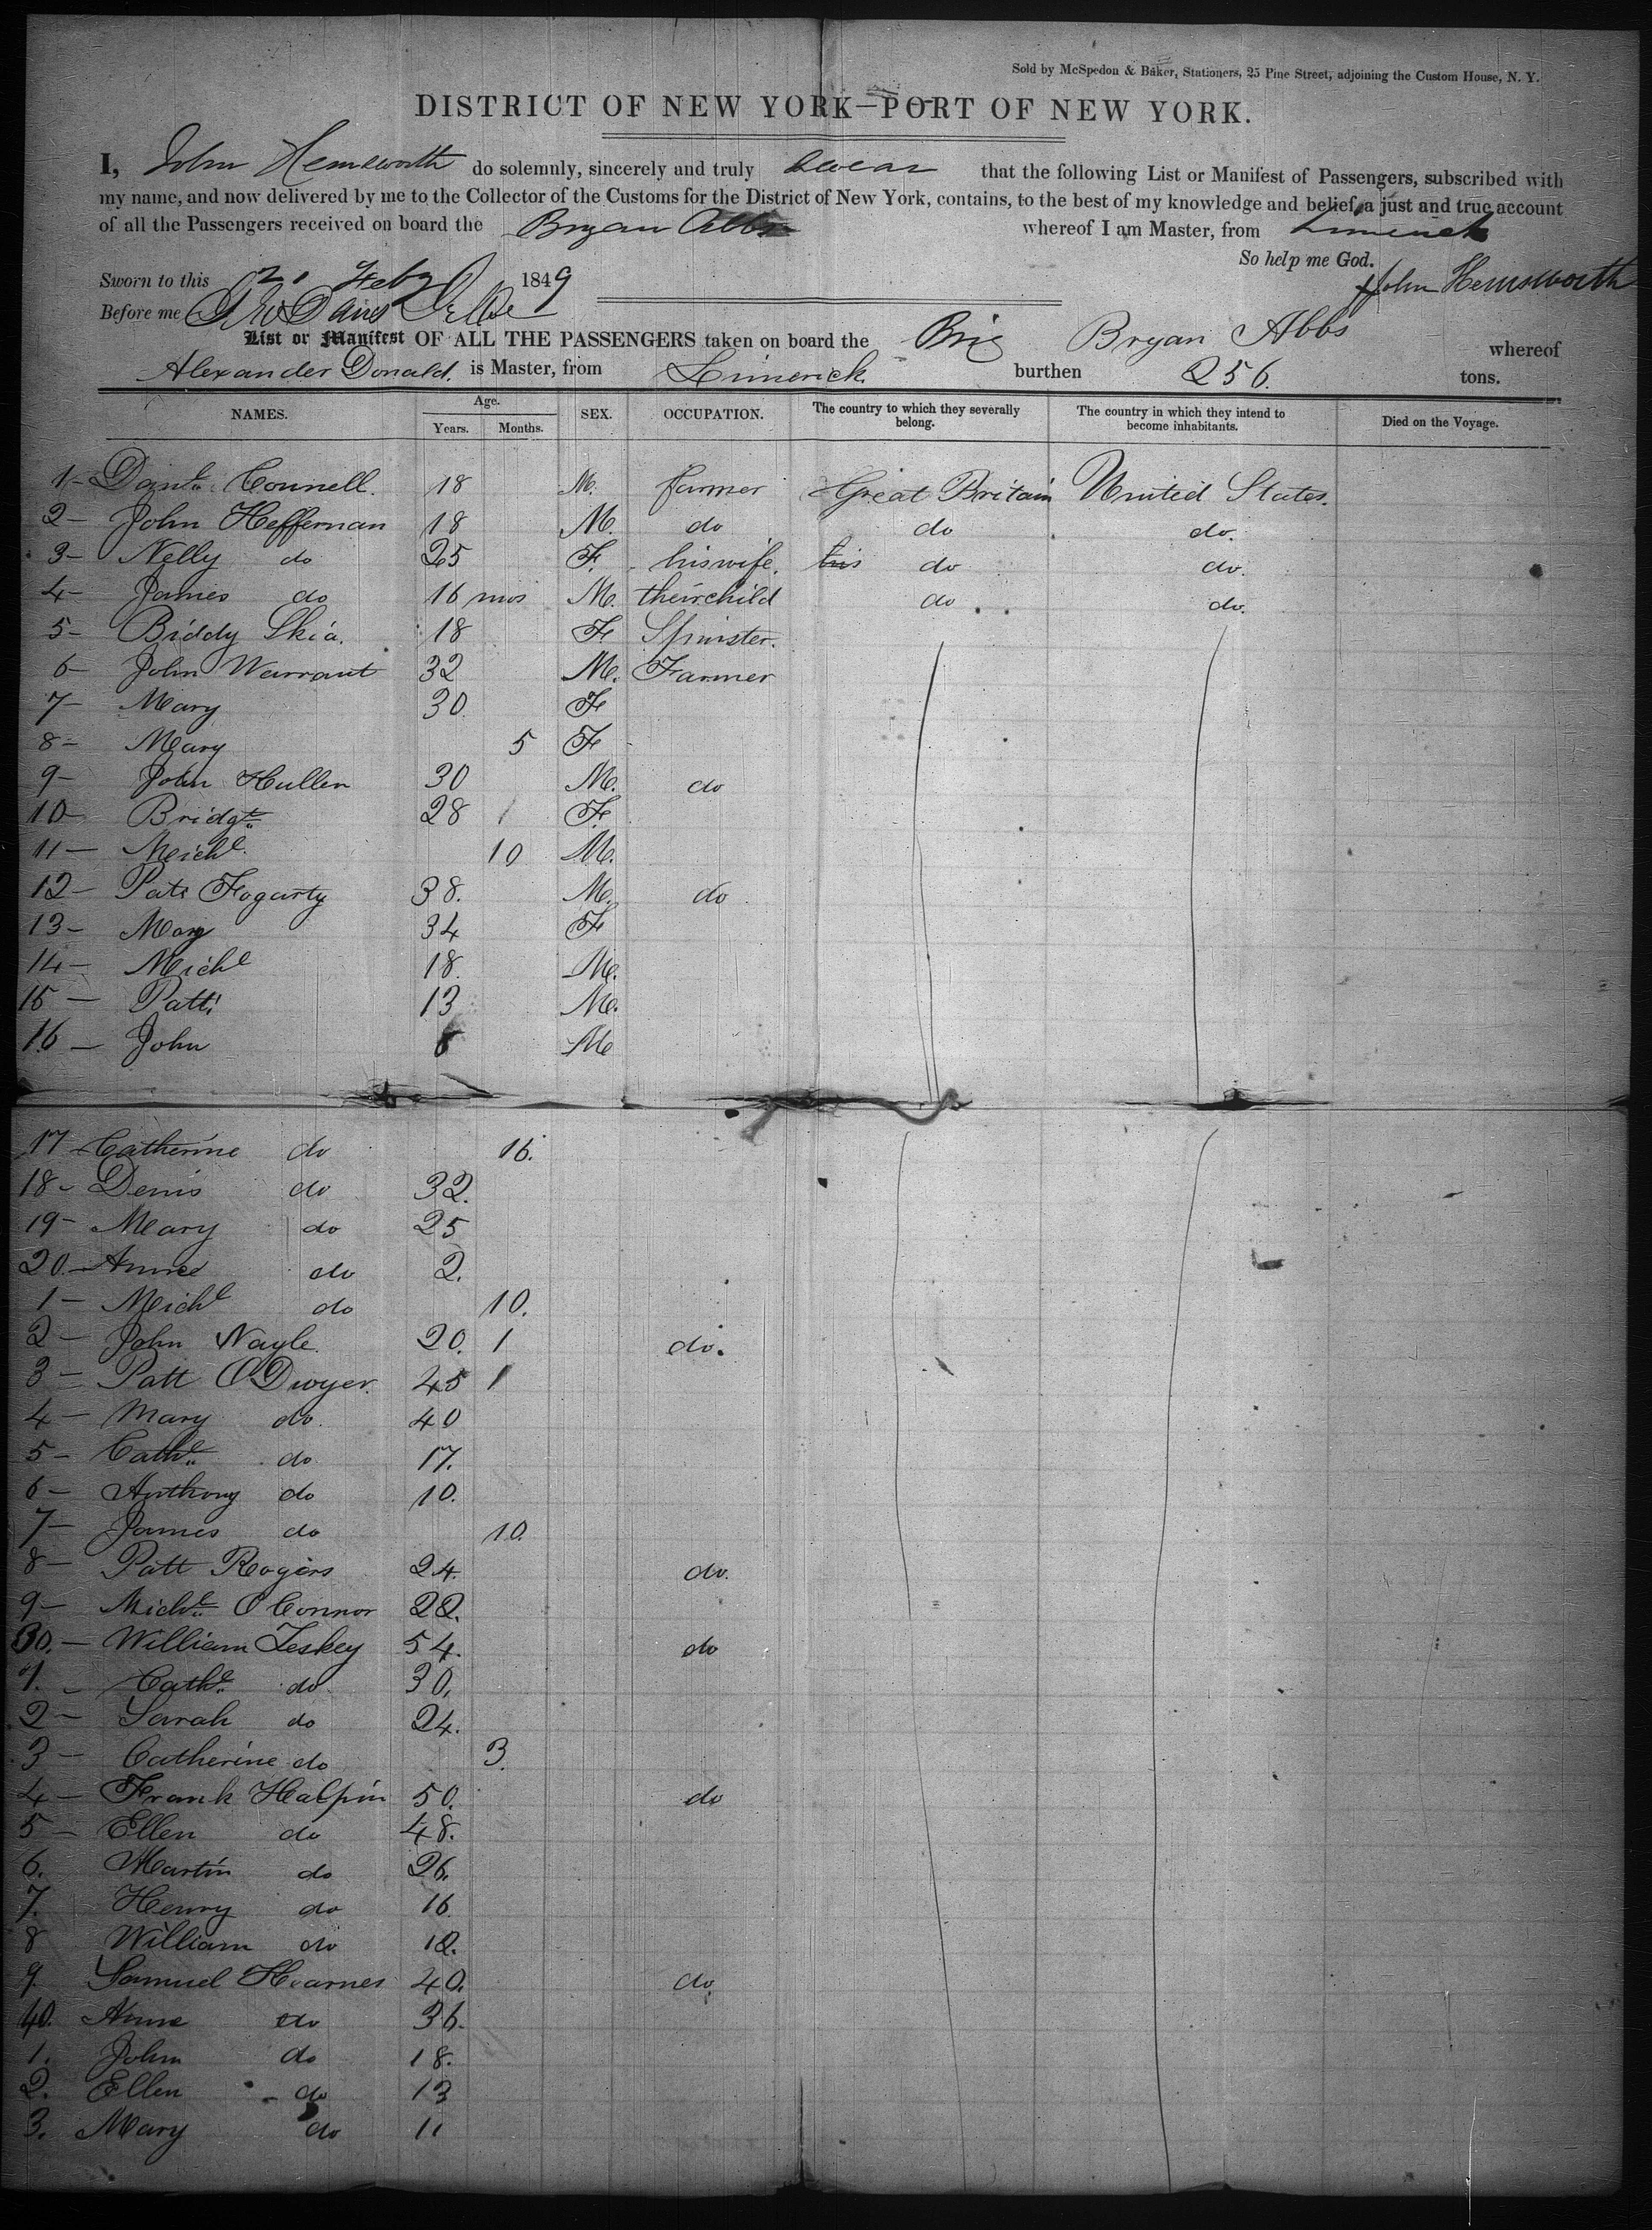 Sold by McSpedon & Baker, Stationers, 25 Pine Street, adjoining the Custom House, N. Y.
DISTRICT OF NEW YORK—PORT OF NEW YORK.
I, John Hemsworth do solemnly, sincerely and truly swear that the following List or Manifest of Passengers, subscribed with
my name, and now delivered by me to the Collector of the Customs for the District of New York, contains, to the best of my knowledge and belief, a just and true account
of all the Passengers received on board the Bryan Abbs whereof I am Master, from Limerick
So help me God.
Sworn to this Feby 1849 John Hemsworth
Before me
List or Manifest OF ALL THE PASSENGERS taken on board the Brig Bryan Abbs whereof
Alexander Donald. is Master, from Limerick. burthen 256. tons.
NAMES. Age. Years. Months. SEX. OCCUPATION. The country to which they severally belong. The country in which they intend to become inhabitants. Died on the Voyage.
1- Danl. Connell. 18 M. farmer Great Britain United States.
2- John Heffernan 18 M. do do do.
3- Nelly do 25 F. his wife. his do do.
4- James do 16 mos M. their child do do.
5- Biddy Skia. 18 F Spinster.
6- John Warrant 32 M. Farmer
7- Mary 30. F
8- Mary 5 F
9- John Hullen 30 M. do
10- Bridgt. 28 F.
11- Michl. 10 M.
12- Patt Fogarty 38. M. do
13- Mary 34 F
14- Michl 18. M.
15- Patt 13 M.
16- John M
17- Catherine do 16.
18- Denis do 32.
19- Mary do 25
20- Anne do 2.
1- Michl do 10.
2- John Nagle. 20. 1 do.
3- Patt O'Dwyer. 45 1
4- Mary do. 40
5- Cathe. do. 17.
6- Anthony do 10.
7- James do 10.
8- Patt Rogers 24. do.
9- Michl. O'Connor 22.
30.- William Leskey 54. do
1. Cathe. do. 30,
2- Sarah do 24.
3- Catherine do 3.
4- Frank Halpin 50. do
5- Ellen do 48.
6. Martin do 26.
7. Henry do 16
8 William do 12.
9. Samuel Hearnes 40. do.
40. Anne do 36.
1. John do 18.
2. Ellen do 13
3. Mary do 11